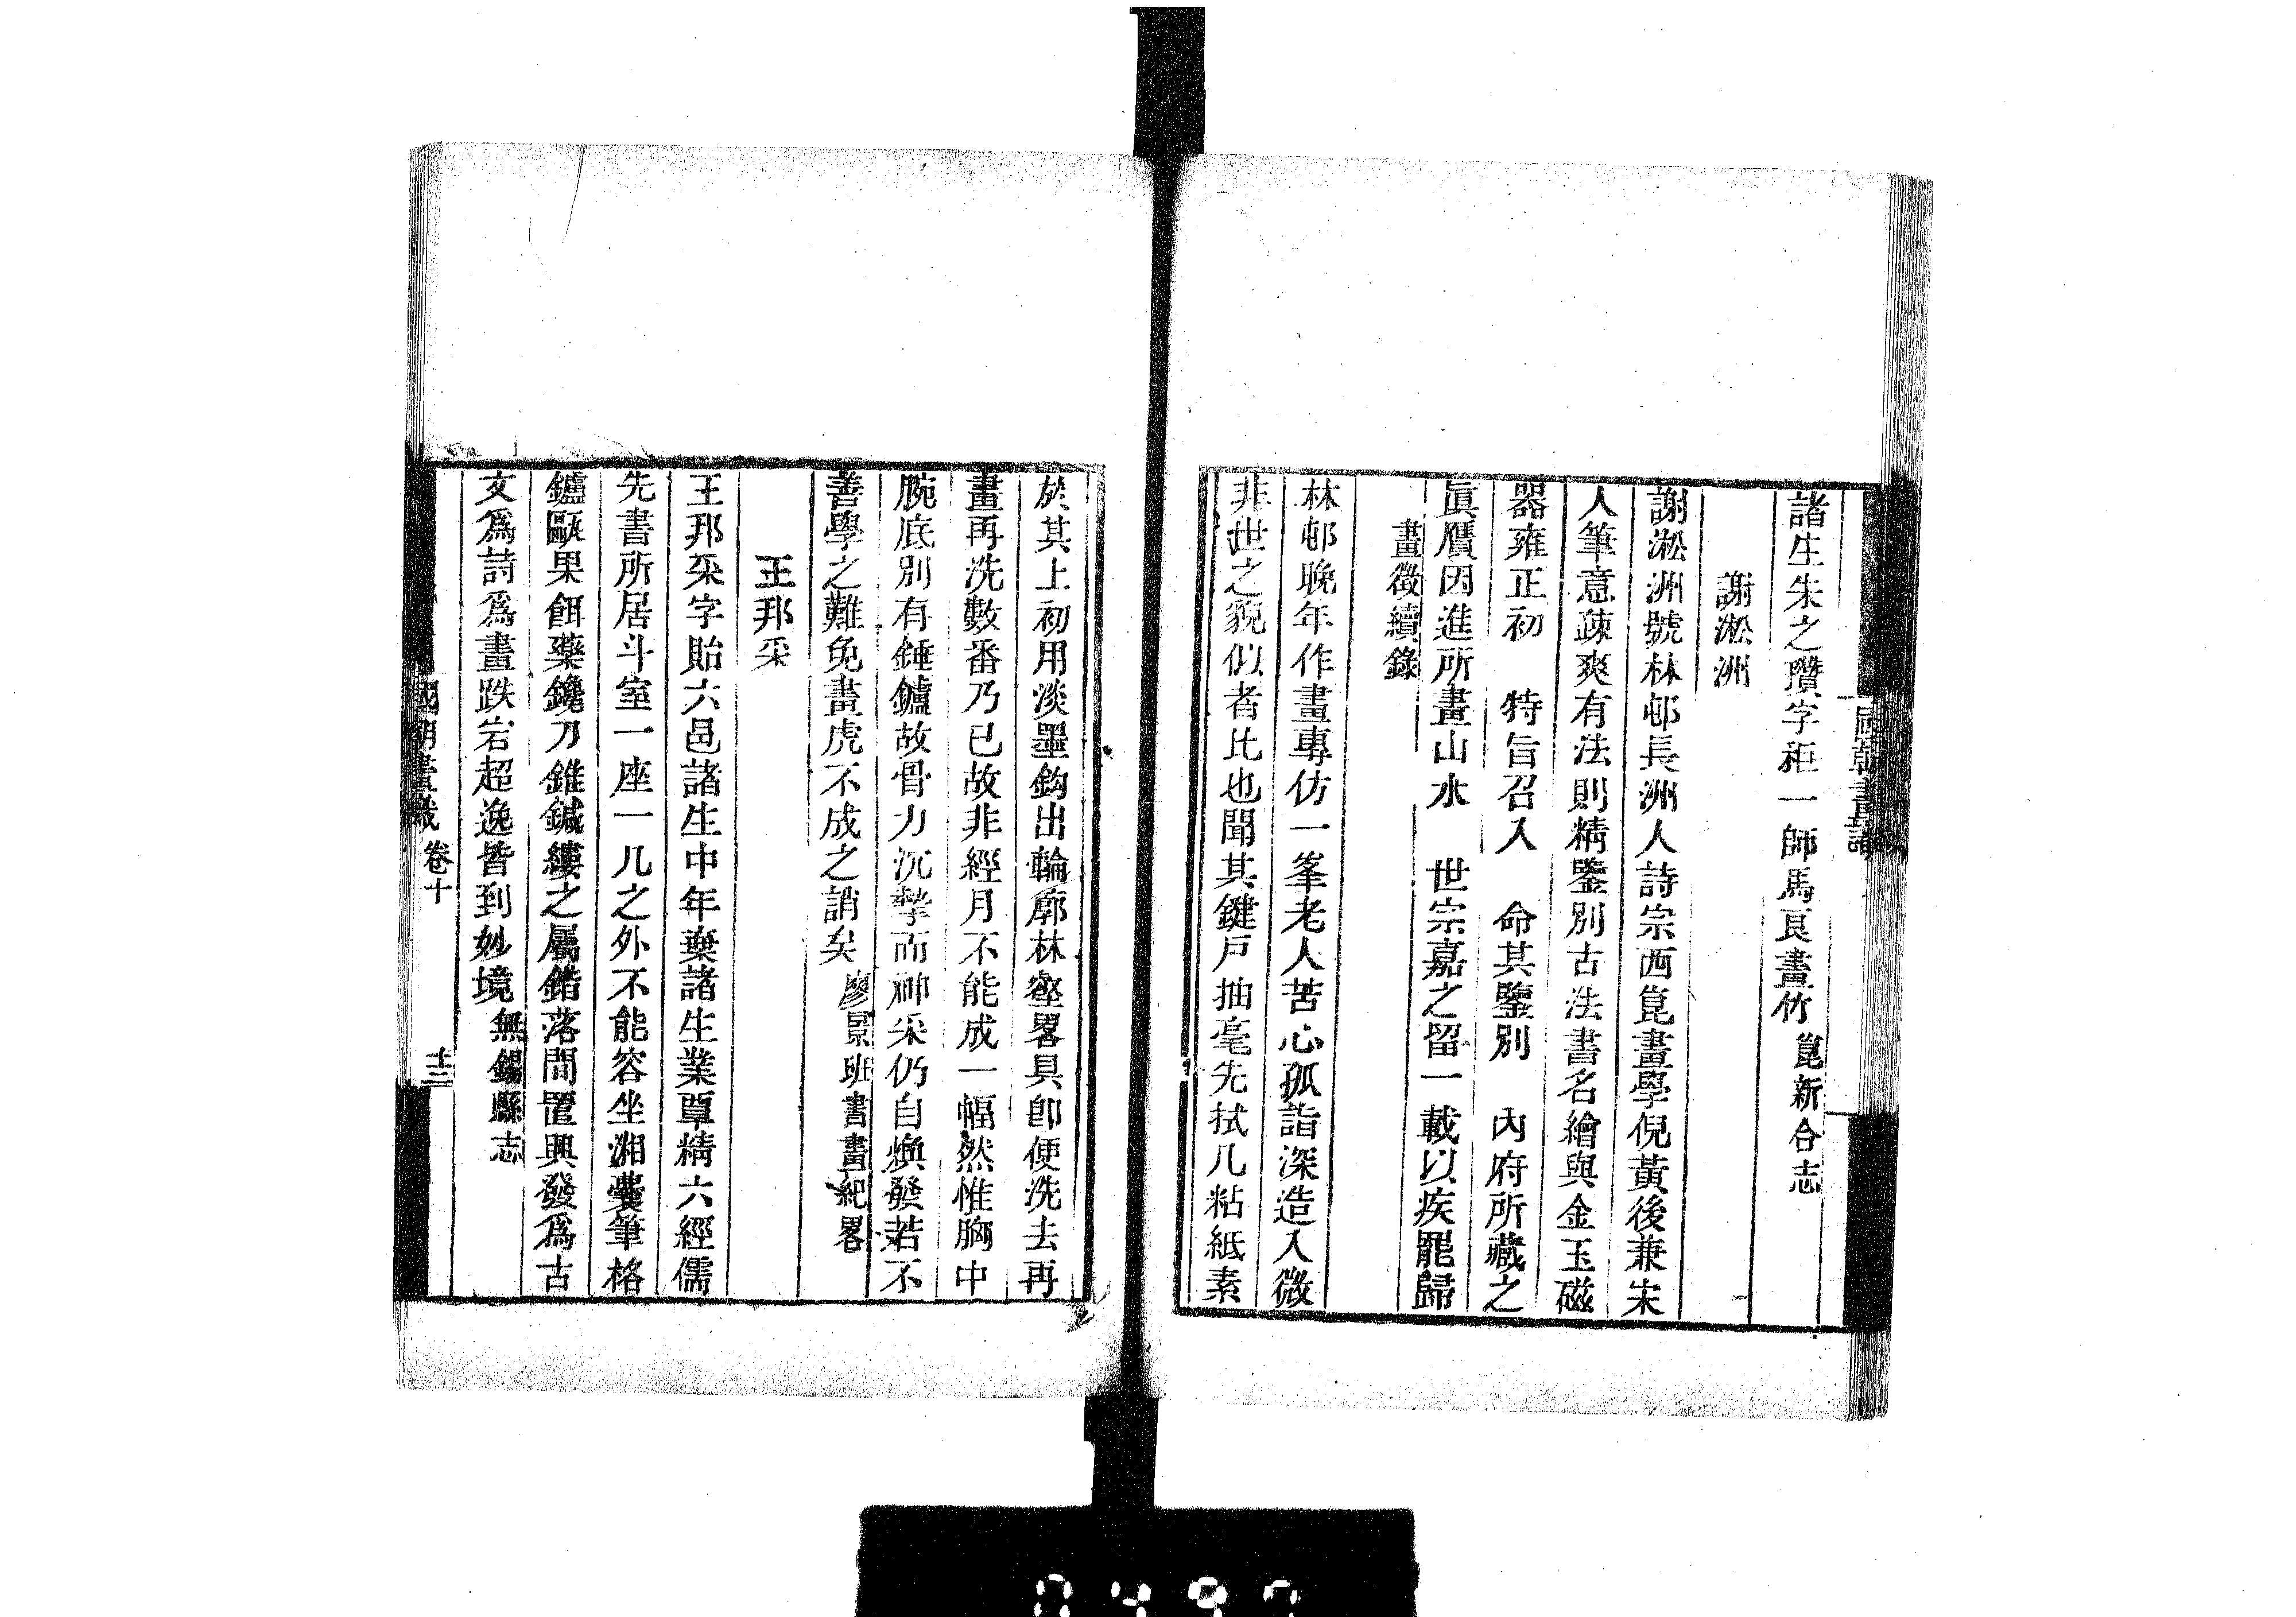 諸生朱之瓚字秬一師馬艮畫竹崑新合志
謝淞洲
謝淞洲號林邨長洲人詩宗西崑畫學倪黃後兼宋
人筆意疎爽有法則精鑒別古法書名繪與金玉磁
器雍正初 特旨召入 命其鑒別 內府所藏之
眞贋因進所畫山水 世宗嘉之留一載以疾罷歸
畫徵續錄
林邨晚年作畫專仿一峯老人苦心孤詣深造入微
非世之貌似者比也聞其鍵戶抽毫先拭几粘紙素
於其上初用淡墨鈎出輪廓林壑畧具卽便洗去再
畫再洗數番乃已故非經月不能成一幅然惟胸中
腕底別有錘鑪故骨力沉摯而神采仍自煥發若不
善學之難免畫虎不成之誚矣廖景班書畫紀畧
王邦采
王邦采字貽六邑諸生中年棄諸生業覃精六經儒
先書所居斗室一座一几之外不能容坐湘囊筆格
鑪甌果餌藥鑱刀錐鍼縷之屬錯落間置興發爲古
文爲詩爲畫跌宕超逸皆到妙境無錫縣志
國朝畫識 卷十 十三